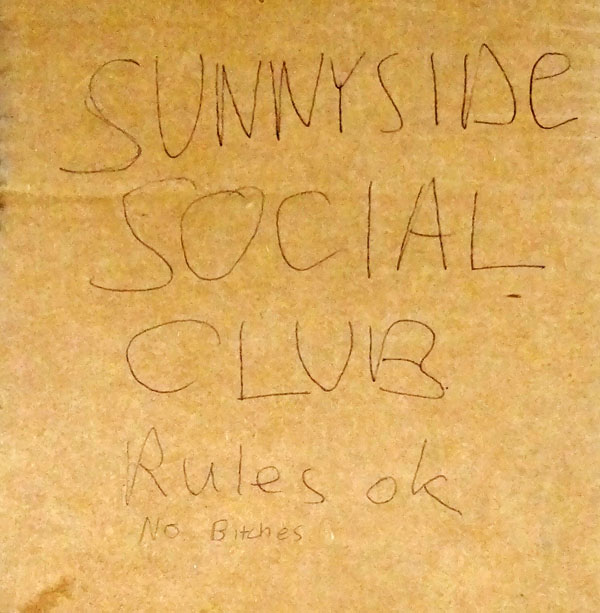 SUNNYSIDe
SOCIAL
CLUB
Rules ok
No Bitches